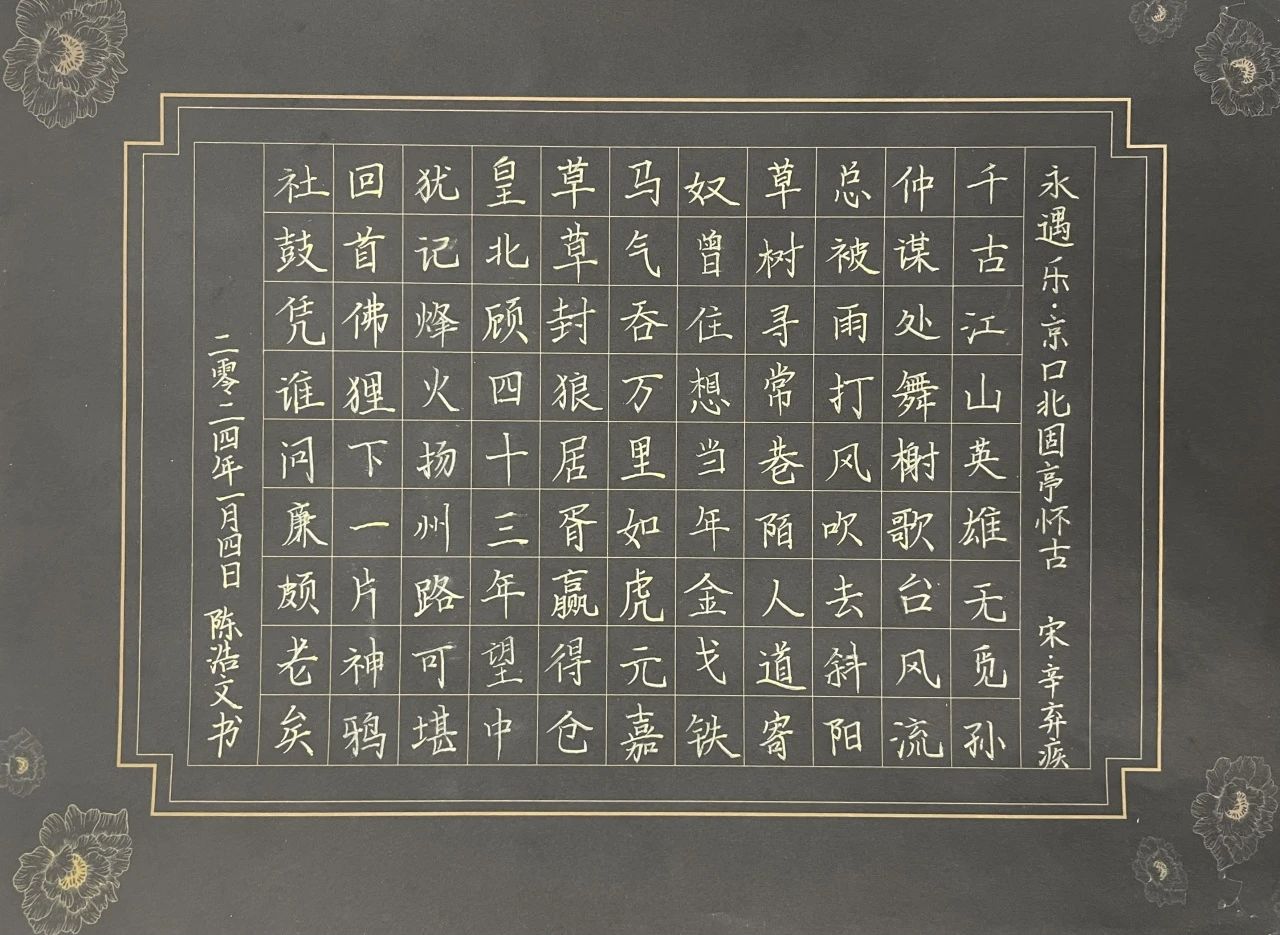 永遇乐·京口北固亭怀古 宋·辛弃疾
千古江山英雄无觅孙
仲谋处舞榭歌台风流
总被雨打风吹去斜阳
草树寻常巷陌人道寄
奴曾住想当年金戈铁
马气吞万里如虎元嘉
草草封狼居胥赢得仓
皇北顾四十三年望中
犹记烽火扬州路可堪
回首佛狸下一片神鸦
社鼓凭谁问廉颇老矣
二零二四年一月四日 陈浩文书